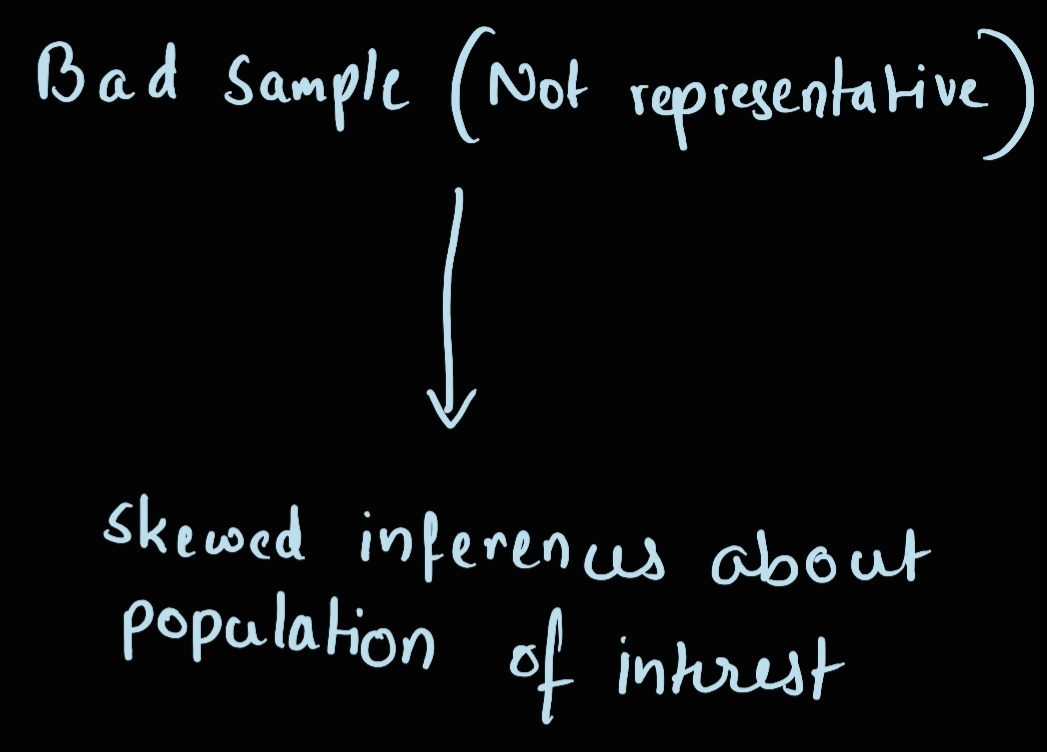 Bad Sample (Not representative)
skewed inferences about
population of interest